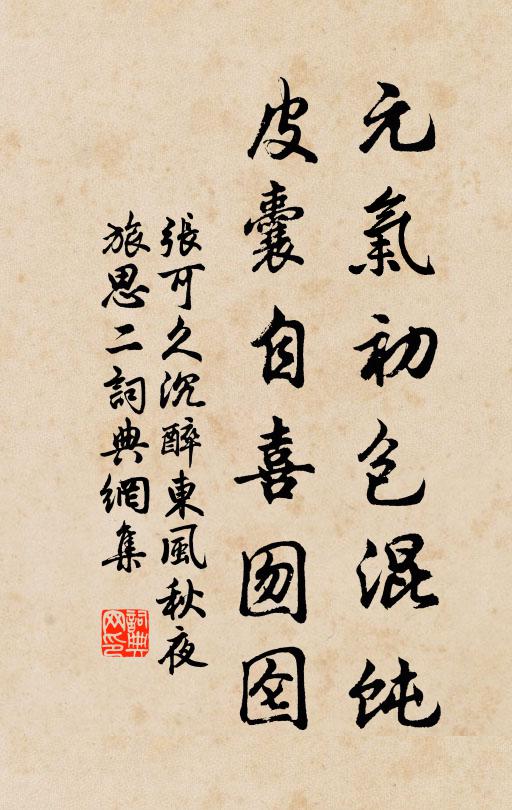 元氣初包混飩
皮囊自喜囫囵
張可久沉醉東風秋夜
旅思二詞典網集
詞典网印